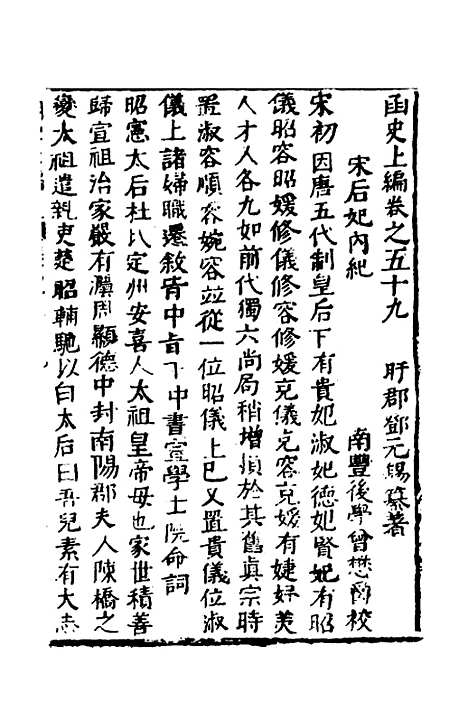 函史上編卷之五十九　　盱郡鄧元錫纂著
宋后妃內紀　　南豐後學曾懋爵校
宋初因唐五代制皇后下有貴妃淑妃德妃賢妃有昭
儀昭容昭媛修儀修容修媛充儀充容充媛有婕妤美
人才人各九如前代獨六尚局稍增損於其舊真宗時
置淑容順容婉容並從一位昭儀上已又置貴儀位淑
儀上諸婦職遷敘皆中旨下中書宣學士院命詞
昭憲太后杜氏定州安喜人太祖皇帝母也家世積善
歸宣祖治家嚴有灋周顯德中封南陽郡夫人陳橋之
變太祖遣親吏楚昭輔馳以白太后曰吾兒素有大志